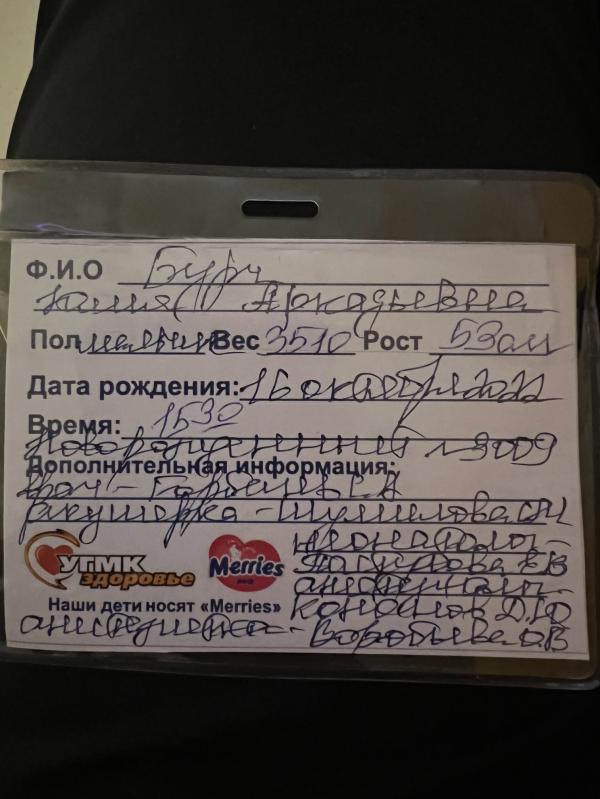 Ф.И.О Бурч
Аркадьевна
Пол мальчик Вес 3510 Рост 53см
Дата рождения: 16 октября 2022
Время: 1530
Новорожденный 3009
Дополнительная информация:
врач -
акушерка - Шумилова
неонатолог-
УГМК
здоровье
Merries
анестезиолог-
Наши дети носят «Merries»
Д.Ю
анестезистка - Воробьева О.В